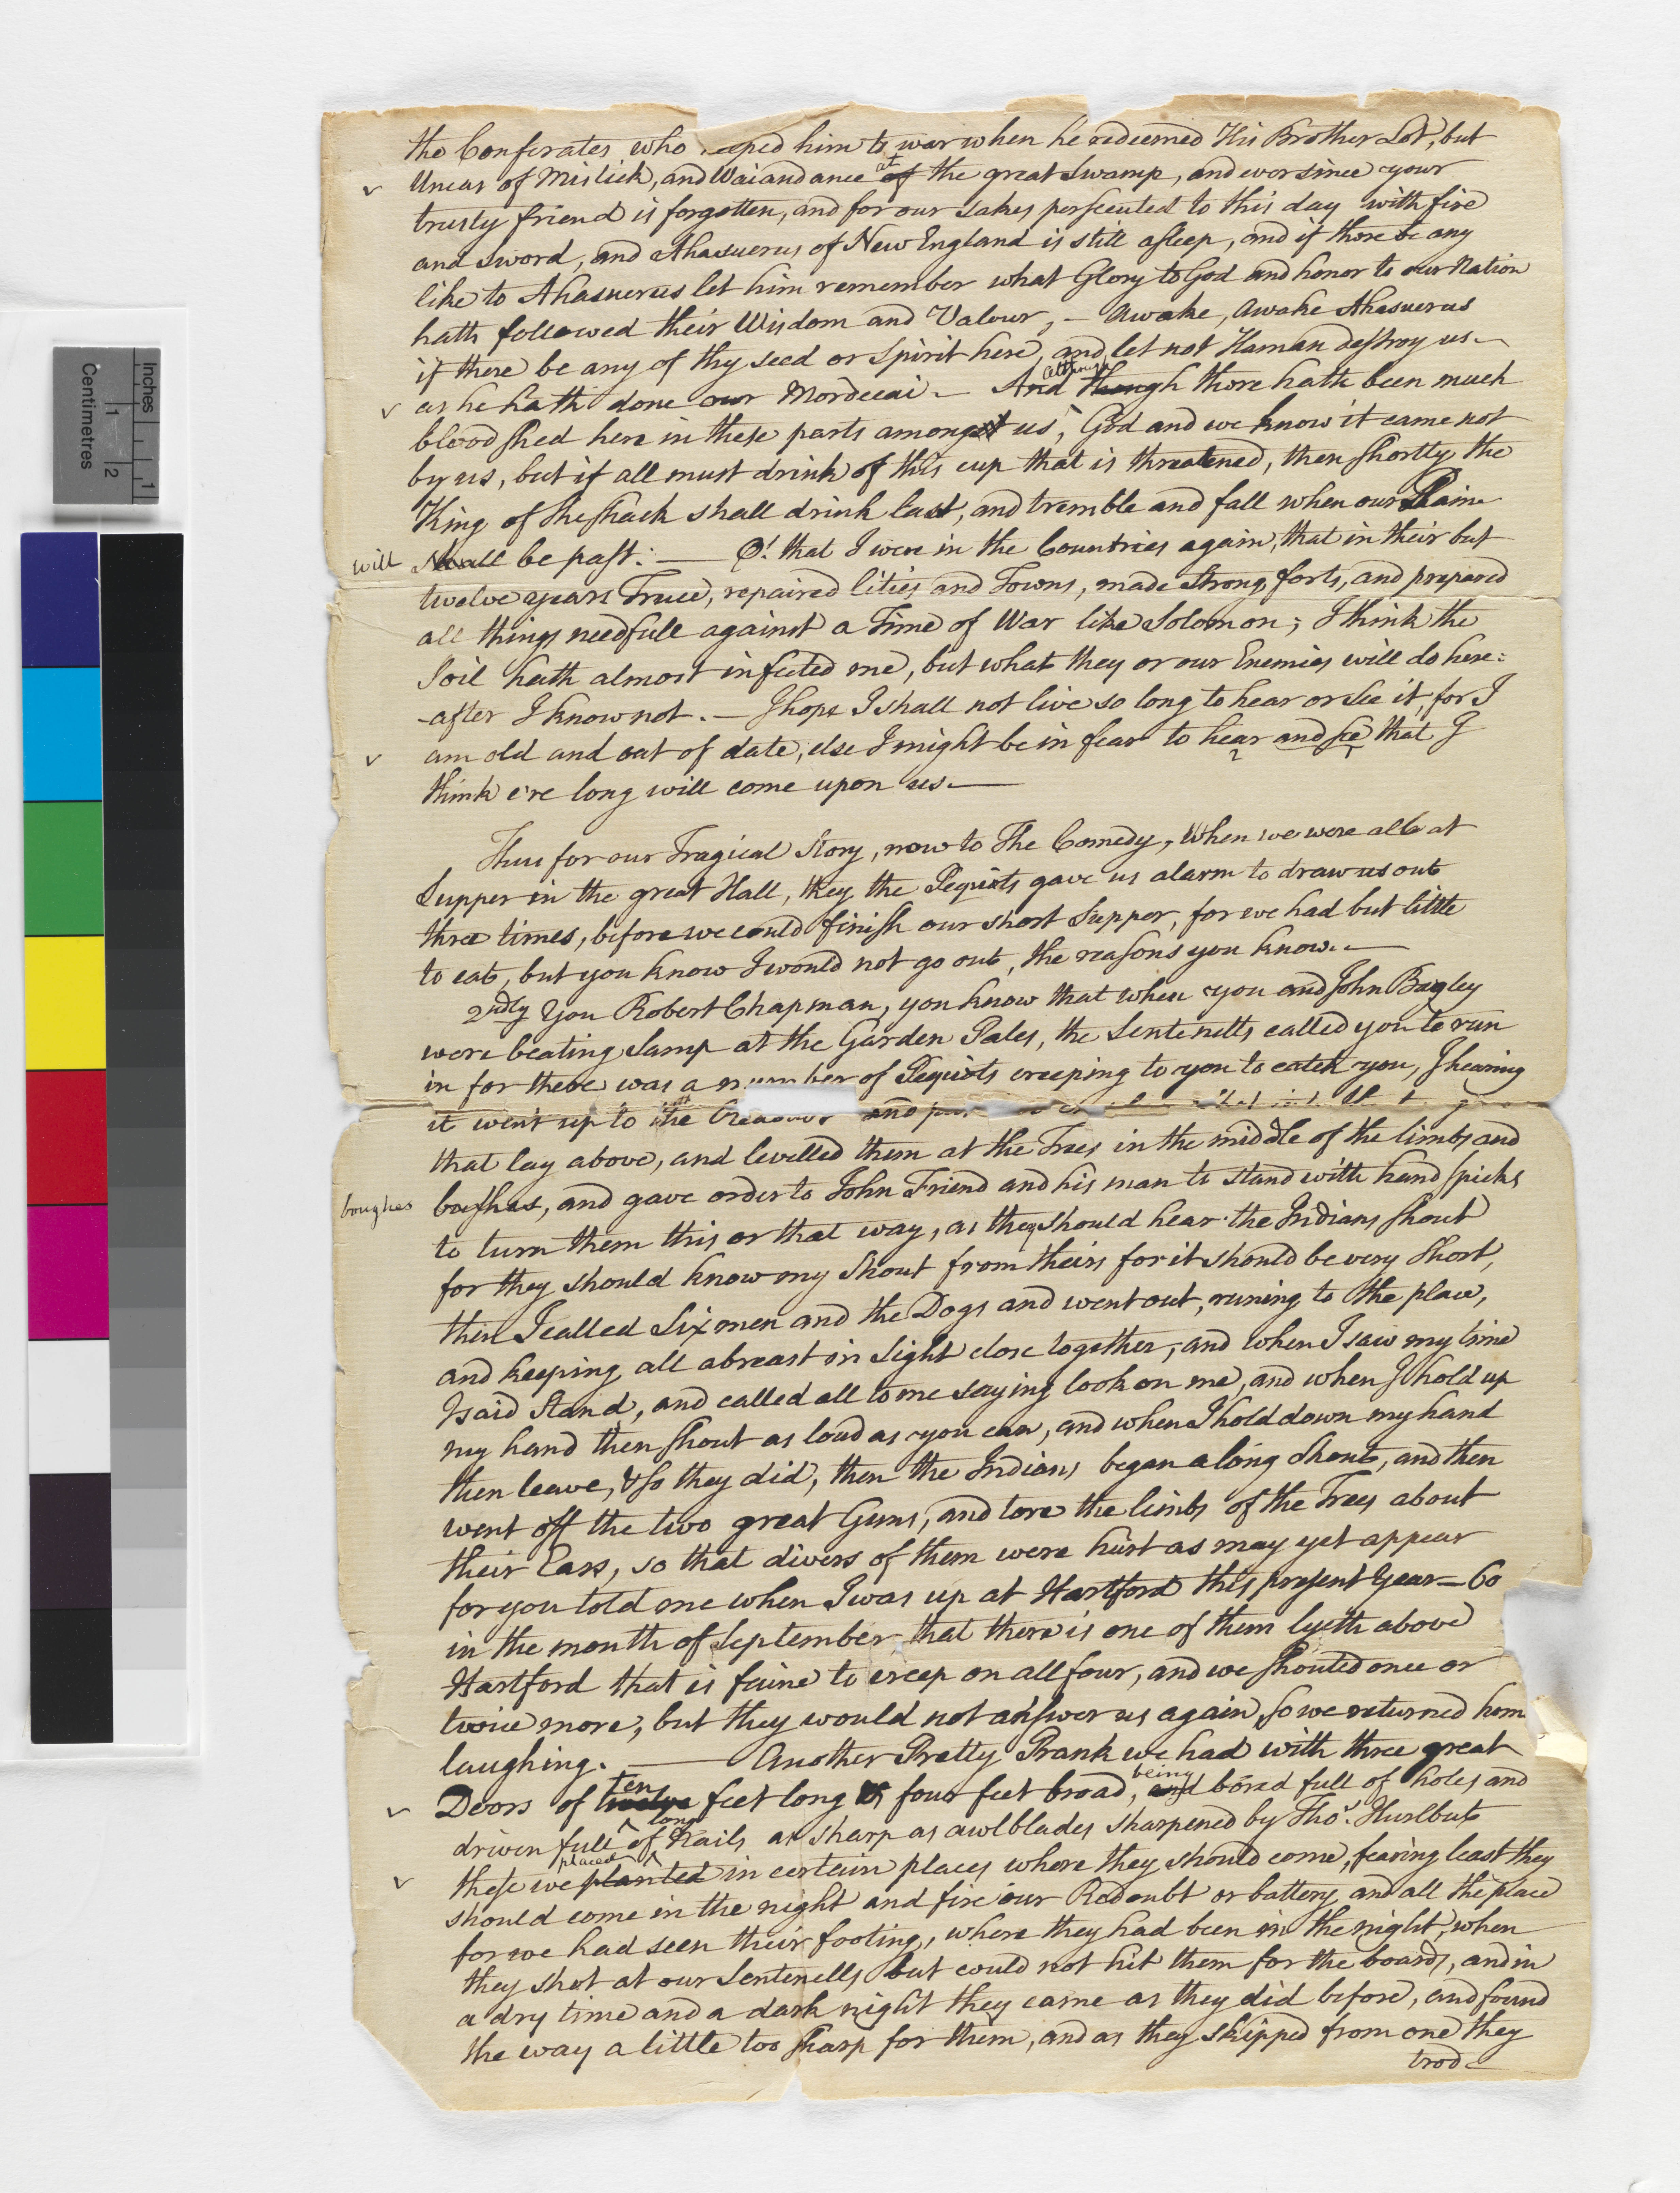 the Conferates who elped him to war when he redeemed His Brother Lot, but
Uncas of Mistick, and Waiandance at of the great Swamp, and ever since your
trusty friend is forgotten, and for our sakes persecuted to this day with fire
and sword, and Ahasuerus of New England is still asleep, and if there be any
like to Ahasuerus let him remember what Glory to God and honor to our Nation
hath followed their Wisdom and Valour, - Awake, Awake Ahasuerus
if there be any of thy seed or spirit here, and let not Haman destroy us
as he hath done our Mordecai. - And though although there hath been much
blood shed here in these parts amongst us, God and we know it came not
by us, but if all must drink of this cup that is threatened, then shortly the
King of Sheshack shall drink last, and tremble and fall when our Paine
will shall be past: — O! that I were in the Countries again, that in their but
twelve years Truce, repaired Cities and Towns, made strong forts, and prepared
all things needfull against a Time of War like Solomon; I think the
Soil hath almost infected me, but what they or our Enemies will do here:
-after I know not. - I hope I shall not live so long to hear or see it, for I
am old and out of date, else I might be in fear to hear and see that I
think e're long will come upon us. —
Thus for our Tragical Story, now to The Comedy, When we were all at
Supper in the great Hall, they the Pequits gave us alarm to draw us out
three times, before we could finish our short Supper, for we had but little
to eat, but you know I would not go out, the reasons you know. —
2ndly You Robert Chapman, you know that when you and John Bagley
were beating Samp at the Garden Pales, the Sentenells called you to run
in for there was a number of Pequits creeping to you to catch you, I hearing
it went up to the
that lay above, and levelled them at the Trees in the middle of the limbs and
boughes boushes, and gave order to John Friend and his man to stand with hand spicks
to turn them this or that way, as they should hear the Indians shout
for they should know my shout from theirs for it should be very short,
then I called Six men and the Dogs and went out, runing to the place,
and keeping all abreast in sight close together, and when I saw my time
I said Stand, and called all to me saying look on me, and when I hold up
my hand then shout as loud as you can, and when I hold down my hand
then leave, & so they did, then the Indians began a long shout, and then
went off the two great Guns, and tore the limbs of the Trees about
their Ears, so that divers of them were hurt as may yet appear
for you told me when I was up at Hartford this present Year - 60
in the month of September that there is one of them lyeth above
Hartford that is faine to creep on all four, and we shouted once or
twice more, but they would not answer us again, so we returned hom
laughing. — Another Pretty Prank we had with three great
Doors of twelve ten feet long & four feet broad, and being bored full of holes and
driven full of long Nails as sharp as awl blades sharpened by Thos. Hurlbut
these we planted placed in certain places where they should come, fearing least they
should come in the night and fire our Redoubt or battery, and all the place
for we had seen their footing, where they had been in the night, when
they shot at our Sentenells but could not hit them for the boards, and in
a dry time and a dark night they came as they did before, and found
the way a little too sharp for them, and as they skipped from one they
trod
Inches
Centimetres
1
2
1